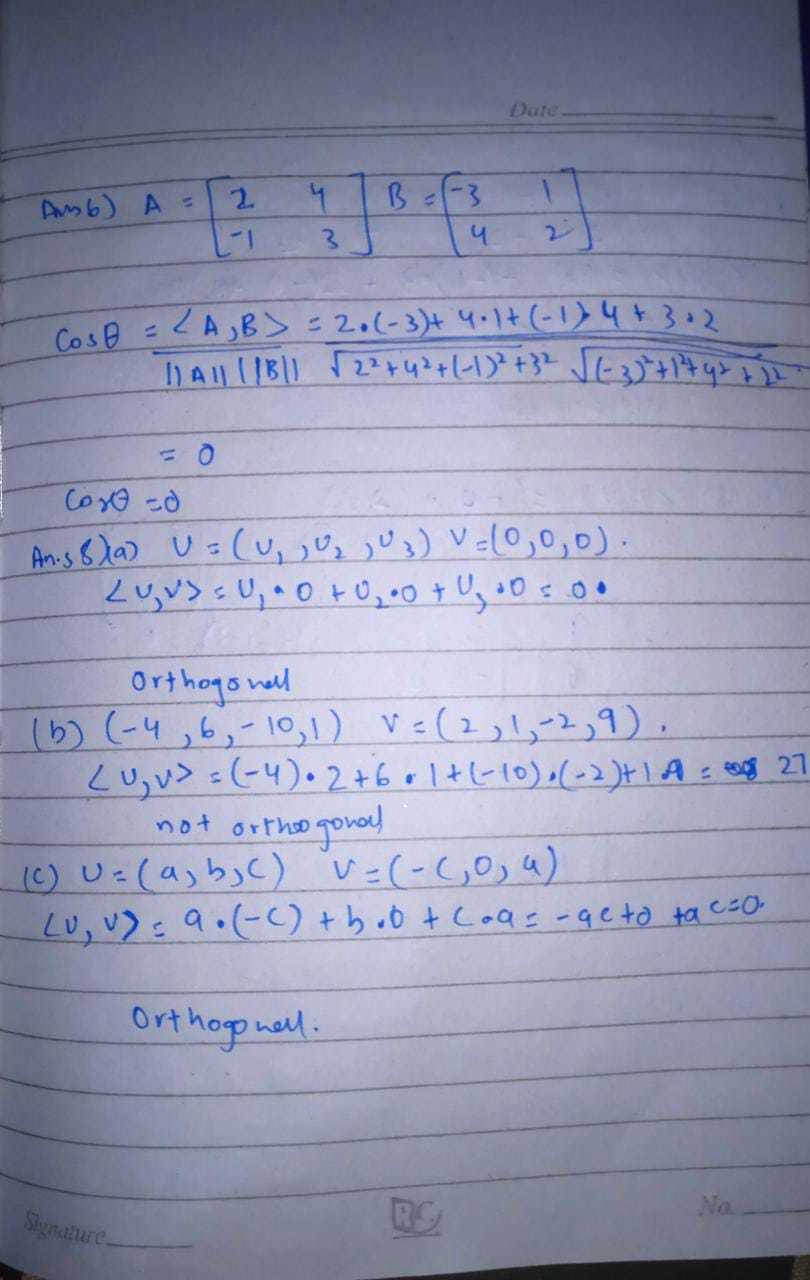 Date
Ans 6) A = [2 4 -1 3] B = [-3 1 4 2]
Cosθ = <A,B> = 2.(-3)+ 4.1+(-1).4+3.2
||A|| ||B|| √2²+4²+(-1)²+3² √(-3)²+1²+4²+2²
= 0
Cosθ =0
Ans 8)(a) U = (U₁,U₂,U₃) V=(0,0,0).
<U,V> = U₁.0+U₂.0+U₃.0 = 0.
Orthogonall
(b) (-4,6,-10,1) V=(2,1,-2,9).
<U,V> = (-4).2+6.1+(-10).(-2)+1.9 = 27
not orthogonal
(C) U=(a,b,c) V=(-c,0,a)
<U,V> = a.(-c)+b.0+c.a = -ac+0 +ac=0.
Orthogonall.
Signature
RC
No.